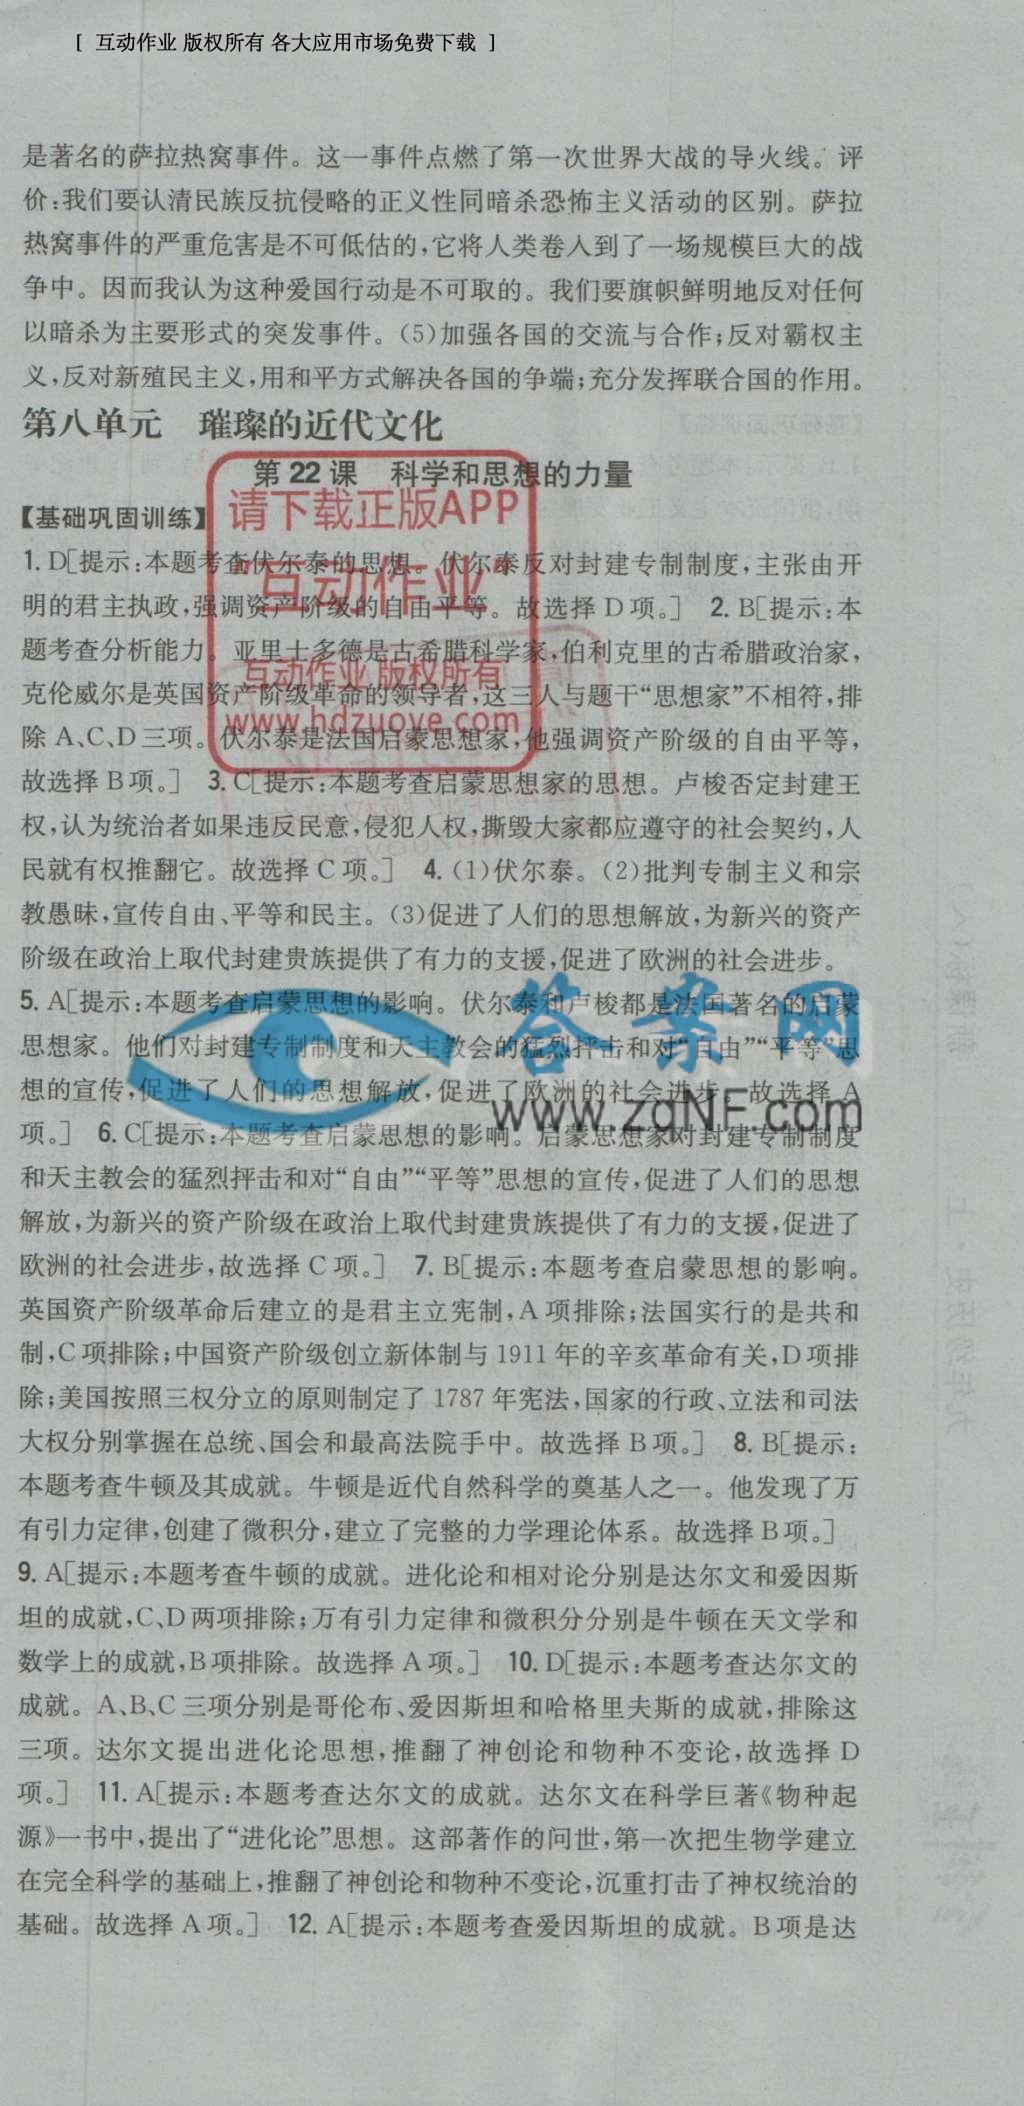 [ 互动作业 版权所有 各大应用市场免费下载 ]
是著名的萨拉热窝事件。这一事件点燃了第一次世界大战的导火线。评
价:我们要认清民族反抗侵略的正义性同暗杀恐怖主义活动的区别。萨拉
热窝事件的严重危害是不可低估的,它将人类卷入到了一场规模巨大的战
争中。因而我认为这种爱国行动是不可取的。我们要旗帜鲜明地反对任何
以暗杀为主要形式的突发事件。(5)加强各国的交流与合作;反对霸权主
义,反对新殖民主义,用和平方式解决各国的争端;充分发挥联合国的作用。
第八单元 璀璨的近代文化
第 22 课 科学和思想的力量
【基础巩固训练】
请下载正版APP
“互动作业”
互动作业 版权所有
www.hdzuoye.com
1. D[提示:本题考查伏尔泰的思想。伏尔泰反对封建专制制度,主张由开
明的君主执政,强调资产阶级的自由平等。故选择 D 项。] 2. B[提示:本
题考查分析能力。亚里士多德是古希腊科学家,伯利克里的古希腊政治家,
克伦威尔是英国资产阶级革命的领导者,这三人与题干“思想家”不相符,排
除 A、C、D 三项。伏尔泰是法国启蒙思想家,他强调资产阶级的自由平等,
故选择 B 项。] 3. C[提示:本题考查启蒙思想家的思想。卢梭否定封建王
权,认为统治者如果违反民意,侵犯人权,撕毁大家都应遵守的社会契约,人
民就有权推翻它。故选择 C 项。] 4. (1)伏尔泰。(2)批判专制主义和宗
教愚昧,宣传自由、平等和民主。(3)促进了人们的思想解放,为新兴的资产
阶级在政治上取代封建贵族提供了有力的支援,促进了欧洲的社会进步。
5. A[提示:本题考查启蒙思想的影响。伏尔泰和卢梭都是法国著名的启蒙
思想家。他们对封建专制制度和天主教会的猛烈抨击和对“自由”“平等”思
想的宣传,促进了人们的思想解放,促进了欧洲的社会进步。故选择 A
项。] 6. C[提示:本题考查启蒙思想的影响。启蒙思想家对封建专制制度
和天主教会的猛烈抨击和对“自由”“平等”思想的宣传,促进了人们的思想
解放,为新兴的资产阶级在政治上取代封建贵族提供了有力的支援,促进了
欧洲的社会进步,故选择 C 项。] 7. B[提示:本题考查启蒙思想的影响。
英国资产阶级革命后建立的是君主立宪制,A 项排除;法国实行的是共和
制,C 项排除;中国资产阶级创立新体制与 1911 年的辛亥革命有关,D 项排
除;美国按照三权分立的原则制定了 1787 年宪法,国家的行政、立法和司法
大权分别掌握在总统、国会和最高法院手中。故选择 B 项。] 8. B[提示:
本题考查牛顿及其成就。牛顿是近代自然科学的奠基人之一。他发现了万
有引力定律,创建了微积分,建立了完整的力学理论体系。故选择 B 项。]
9. A[提示:本题考查牛顿的成就。进化论和相对论分别是达尔文和爱因斯
坦的成就,C、D 两项排除;万有引力定律和微积分分别是牛顿在天文学和
数学上的成就,B 项排除。故选择 A 项。] 10. D[提示:本题考查达尔文的
成就。A、B、C 三项分别是哥伦布、爱因斯坦和哈格里夫斯的成就,排除这
三项。达尔文提出进化论思想,推翻了神创论和物种不变论,故选择 D
项。] 11. A[提示:本题考查达尔文的成就。达尔文在科学巨著《物种起
源》一书中,提出了“进化论”思想。这部著作的问世,第一次把生物学建立
在完全科学的基础上,推翻了神创论和物种不变论,沉重打击了神权统治的
基础。故选择 A 项。] 12. A[提示:本题考查爱因斯坦的成就。B 项是达
答案网
www.zqNF.com